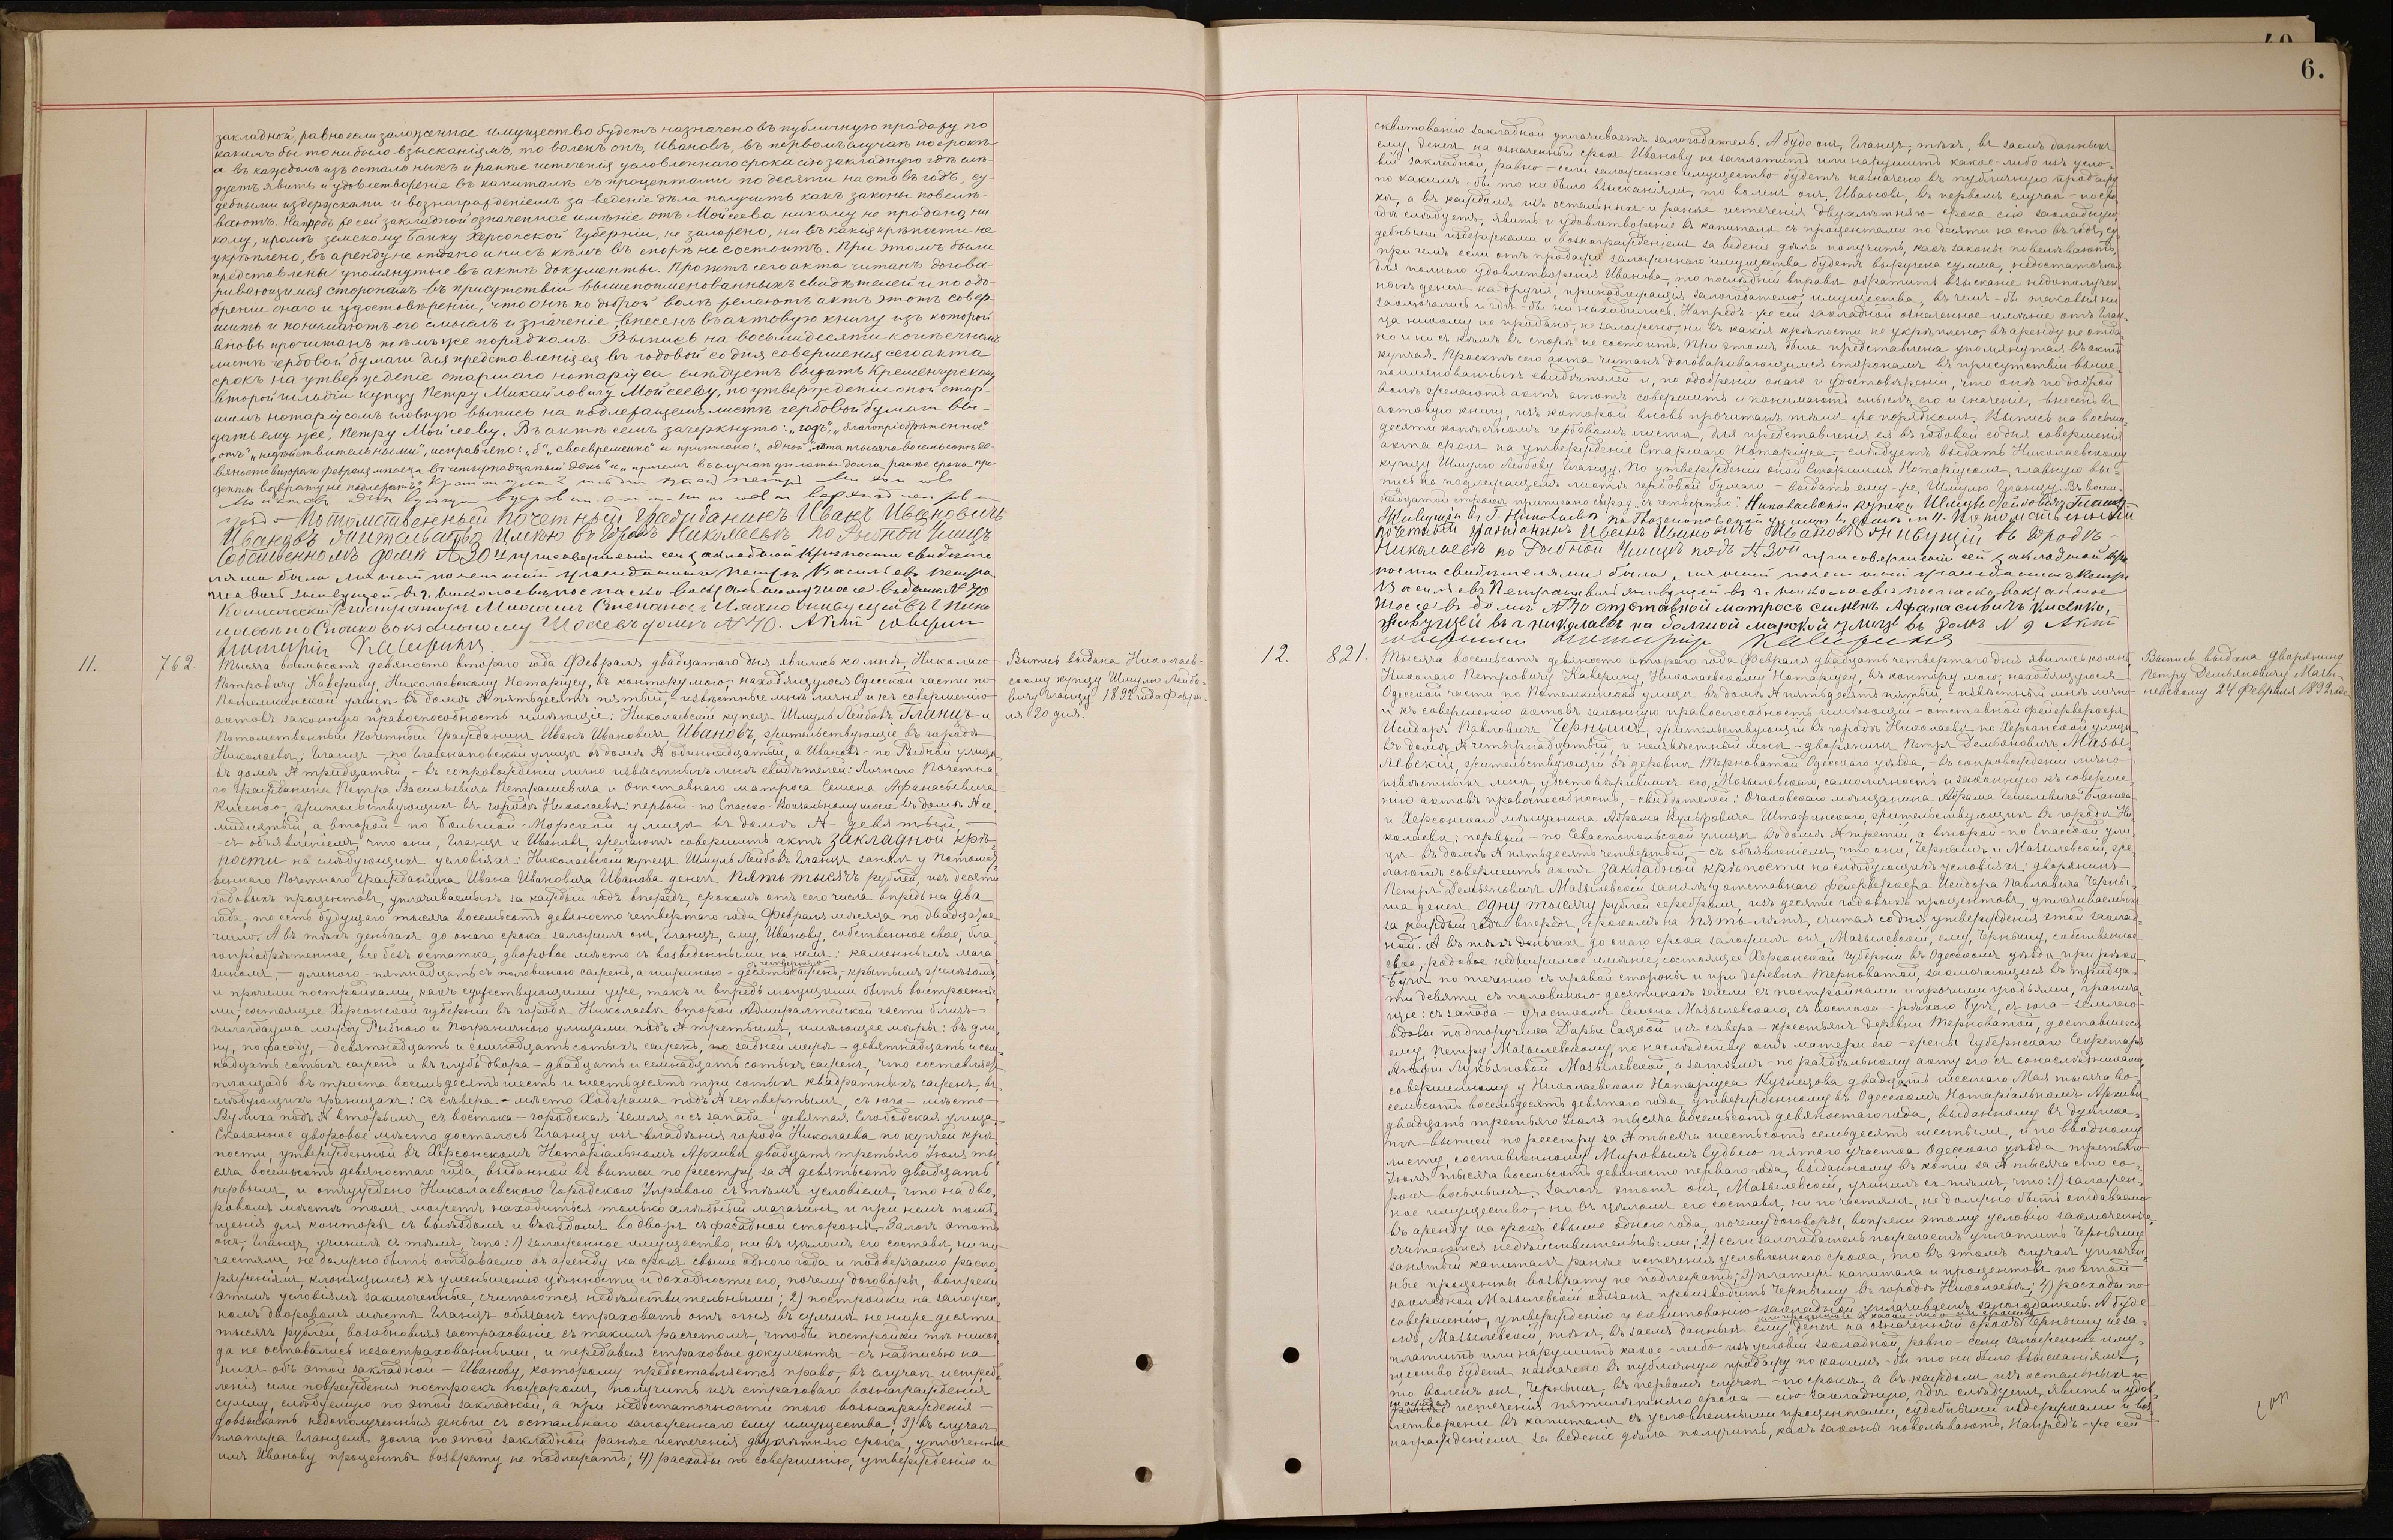 закладной, равно если заложенное имущество будетъ назначено въ публичную продажу по
какимъ бы то ни было взысканіямъ, то воленъ онъ, Ивановъ, въ первомъ случаѣ по срокѣ
а въ каждомъ изъ остальныхъ и ранѣе истеченія условленнаго срока сію закладную гдѣ слѣ-
дуетъ явить и удовлетвореніе въ капиталѣ съ процентами по десяти на сто въ годъ, су-
дебными издержками и вознагражденіемъ за веденіе дѣла получить какъ законы повелѣ-
ваютъ. Напредъ же сей закладной означенное имѣніе отъ Мойсеева никому не продано, ни
кому, кромѣ земскому банку Херсонской Губерніи, не заложено, ни въ какія крѣпости не
укрѣплено, въ аренду не отдано и ни съ кѣмъ въ спорѣ не состоитъ. При этомъ были
представлены упомянутые въ актѣ документы. Проэктъ сего акта читанъ догова-
ривающимся сторонамъ въ присутствіи вышепоименованныхъ свидѣтелей и по одо-
бреніи онаго и удостовѣреніи, что онѣ по доброй волѣ желаютъ актъ этотъ совер-
шить и понимаютъ его смыслъ и значеніе, внесенъ въ актовую книгу изъ которой
вновь прочитанъ тѣмъ же порядкомъ. Выпись на восьмидесяти копѣечномъ
листѣ гербовой бумаги для представленія ея въ годовой со дня совершенія сего акта
срокъ на утвержденіе старшаго нотаріуса слѣдуетъ выдать Кременчугскому
второй гильдіи купцу Петру Михайловичу Мойсееву, по утвержденіи оной стар-
шимъ нотаріусомъ главную выпись на подлежащемъ листѣ гербовой бумаги вы-
дать ему же, Петру Мойсееву. Въ актѣ семъ зачеркнуто: „годъ“, „благопріобрѣтенное“
„отъ“ „недѣйствительными“, исправлено: „б“, „своевременно“ и приписано: „одной“
вяносто втораго февраля мѣсяца въ четырнадцатый день“ и „причемъ въ случаѣ уплаты долга ранѣе срока про-
центы возврату не подлежатъ“
Потомственный почетный гражданинъ Иванъ Ивановичъ
Ивановъ жительство имѣю въ городѣ Николаевѣ по Рыбной улицѣ
собственномъ домѣ № 30 при совершеніи сей закладной крѣпости свидѣте
лями были личный почетный гражданинъ Петръ Васильевъ Петра
шевичъ живущій въ г. Николаевѣ по Спаско вокзальному шоссе въ домѣ № 70
Коллежскій Регистраторъ живущій въ г. Нико
лаевѣ по Спаско вокзальному шоссе въ домѣ № 70. Актъ совершилъ
нотаріусъ Каверинъ.
11. 762. Тысяча восемьсотъ девяносто втораго года Февраля двадцатаго дня явились ко мнѣ, Николаю
Петровичу Каверину, Николаевскому Нотаріусу, въ контору мою, находящуюся Одесской части по
Потемкинской улицѣ въ домѣ № пятьдесятъ пятый, извѣстные мнѣ лично и къ совершенію
актовъ законную правоспособность имѣющіе: Николаевскій купецъ Шмуль Лейбовъ Гланцъ и
Потомственный Почетный Гражданинъ Иванъ Ивановичъ Ивановъ, жительствующіе въ городѣ
Николаевѣ, Гланцъ — по Глазенаповской улицѣ въ домѣ № одиннадцатый, а Ивановъ — по Рыбной улицѣ
въ домѣ № тридцатый, — въ сопровожденіи лично извѣстныхъ мнѣ свидѣтелей: Личнаго Почетна-
го Гражданина Петра Васильевича Петрашевича и отставнаго матроса Семена Афанасьевича
Кисенко, жительствующихъ въ городѣ Николаевѣ: первый — по Спаско-Вокзальному шоссе въ домѣ № се-
мидесятый, а второй — по Большой-Морской улицѣ въ домѣ № девятый, —
— съ объявленіемъ, что они, Гланцъ и Ивановъ, желаютъ совершить актъ закладной крѣ-
пости на слѣдующихъ условіяхъ: Николаевскій купецъ Шмуль Лейбовъ Гланцъ занялъ у Потомст-
веннаго Почетнаго Гражданина Ивана Ивановича Иванова денегъ пять тысячъ рублей, изъ десяти
годовыхъ процентовъ, уплачиваемыхъ за каждый годъ впередъ, срокомъ отъ сего числа впредь на два
года, то есть будущаго тысяча восемьсотъ девяносто четвертаго года Февраля мѣсяца по двадцатое
число. А въ тѣхъ деньгахъ до онаго срока заложилъ онъ, Гланцъ, ему, Иванову, собственное свое, бла-
гопріобрѣтенное, все безъ остатка, дворовое мѣсто съ возведенными на немъ: каменнымъ мага-
зиномъ, — длиною — пятнадцать съ половиною сажень, а шириною — десять съ четвертью сажень, — крытымъ желѣзомъ,
и прочими постройками, какъ существующими уже, такъ и впредь могущими быть выстроенны-
ми, состоящее Херсонской губерніи въ городѣ Николаевѣ второй Адмиралтейской части близъ
шлагбаума между Рыбною и Пограничною улицами подъ № третьимъ, имѣющее мѣры: въ дли-
ну, по фасаду, — девятнадцать и семнадцать сотыхъ сажень, по задней мерѣ — девятнадцать и сем-
надцать сотыхъ сажень и въ глубь двора — двадцать и семнадцать сотыхъ сажень, что составляетъ
площадь въ триста восемьдесятъ шесть и шестьдесятъ три сотыхъ квадратныхъ сажень, въ
слѣдующихъ границахъ: съ сѣвера — мѣсто подъ № четвертымъ, съ юга — мѣсто
подъ № вторымъ, съ востока — городская земля и съ запада — девятая Слободская улица.
Сказанное дворовое мѣсто досталось Гланцу изъ владѣнія города Николаева по купчей крѣ-
пости, утвержденной въ Херсонскомъ Нотаріальномъ Архивѣ двадцать третьяго Іюля ты-
сяча восемьсотъ девяностаго года, выданной въ выписи по реестру за № девятьсотъ двадцать
первымъ, и отчуждено Николаевскою Городскою Управою съ тѣмъ условіемъ, что на дво-
ровомъ мѣстѣ томъ можетъ находиться только хлѣбный магазинъ и при немъ помѣ-
щенія для конторы съ выѣздомъ и въѣздомъ во дворъ съ фасадной стороны. Залогъ этотъ
онъ, Гланцъ, учинилъ съ тѣмъ, что: 1) заложенное имущество, ни въ цѣломъ его составѣ, ни по
частямъ, не должно быть отдаваемо въ аренду на срокъ свыше одного года и подвергаемо распо-
ряженіямъ, клонящимся къ уменьшенію цѣнности и доходности его, почему договоры, вопреки
этимъ условіямъ заключенные, считаются недѣйствительными; 2) постройки на заложен-
номъ дворовомъ мѣстѣ Гланцъ обязанъ страховать отъ огня въ суммѣ не ниже десяти
тысячъ рублей, возобновляя застрахованіе съ такимъ расчетомъ, чтобы постройки тѣ никог-
да не оставались незастрахованными, и передавая страховые документы — съ надписью на
нихъ объ этой закладной — Иванову, которому предоставляется право, въ случаѣ истреб-
ленія или поврежденія построекъ пожаромъ, получить изъ страховаго вознагражденія
сумму, слѣдуемую по этой закладной, а при недостаточности того вознагражденія —
довзыскать недополученныя деньги съ остальнаго заложеннаго ему имущества; 3) въ случаѣ
платежа Гланцемъ долга по этой закладной ранѣе истеченія двухлѣтняго срока, уплоченные
имъ Иванову проценты возврату не подлежатъ; 4) расходы по совершенію, утвержденію и
Выпись выдана Николаев-
скому купцу Шмулю Лейбо-
вичу Гланцу 1892 года Февра-
ля 20 дня.
6.
сквитованію закладной уплачиваетъ залогодатель. А буде онъ, Гланцъ, тѣхъ, въ заемъ данныхъ
ему, денегъ на означенный срокъ Иванову не заплатитъ или нарушитъ какое-либо изъ усло-
вій закладной, равно — если заложенное имущество будетъ назначено въ публичную продажу
по какимъ-бы то ни было взысканіямъ, то воленъ онъ, Ивановъ, въ первомъ случаѣ — по сро-
кѣ, а въ каждомъ изъ остальныхъ и ранѣе истеченія двухлѣтняго срока сію закладную,
гдѣ слѣдуетъ, явить и удовлетвореніе въ капиталѣ съ процентами по десяти на сто въ годъ, су-
дебными издержками и вознагражденіемъ за веденіе дѣла получить, какъ законы повелѣваютъ,
при чемъ если отъ продажи заложеннаго имущества будетъ выручена сумма, недостаточная
для полнаго удовлетворенія Иванова, то послѣдній вправѣ обратить взысканіе недополучен-
ныхъ денегъ на другія, принадлежащія залогодателю, имущества, въ чемъ-бы таковыя ни
заключались и гдѣ-бы ни находились. Напредъ-же сей закладной означенное имѣніе отъ Глан-
ца никому не продано, не заложено, ни въ какія крѣпости не укрѣплено, въ аренду не отда-
но и ни съ кѣмъ въ спорѣ не состоитъ. При этомъ была представлена упомянутая въ актѣ
купчая. Проектъ сего акта читанъ договаривающимся сторонамъ въ присутствіи выше-
поименованныхъ свидѣтелей и, по одобреніи онаго и удостовѣреніи, что онѣ по доброй
волѣ желаютъ актъ этотъ совершить и понимаютъ смыслъ его и значеніе, внесенъ въ
актовую книгу, изъ которой вновь прочитанъ тѣмъ же порядкомъ. Выпись на восьми-
десяти копѣечномъ гербовомъ листѣ, для представленія ея въ годовой со дня совершенія
акта срокъ на утвержденіе Старшаго Нотаріуса, слѣдуетъ выдать Николаевскому
купцу Шмулю Лейбову Гланцу. По утвержденіи оной Старшимъ Нотаріусомъ, главную вы-
пись на подлежащемъ листѣ гербовой бумаги — выдать ему-же, Шмулю Гланцу. Въ восем-
надцатой строкѣ приписано сверху „съ четвертью“. Николаевскій купецъ Шмуль Лейбовичъ Гланцъ
Живущій въ Г. Николаевѣ по Глазенаповской улицѣ въ домѣ № 11. Потомственный
почетный гражданинъ Иванъ Ивановичъ Ивановъ живущій въ городѣ
Николаевѣ по Рыбной улицѣ подъ № 30 при совершеніи сей закладной крѣ
пости свидѣтелями были, личный почетный гражданинъ Петръ
Васильевъ Петрашевичъ живущій въ г. Николаевѣ по Спаско вокзальное
шоссе въ домѣ № 70 отставной матросъ Сименъ Афанасивичъ Кисенко,
живущій в г николаевѣ на болшой марской улицѣ въ домѣ N 9 Актъ
совершилъ нотаріусъ Каверинъ
12. 821. Тысяча восемьсотъ девяносто втораго года Февраля двадцать четвертаго дня явились ко мнѣ,
Николаю Петровичу Каверину, Николаевскому Нотаріусу, въ контору мою, находящуюся
Одесской части по Потемкинской улицѣ въ домѣ № пятьдесятъ пятый, — извѣстный мнѣ лично
и къ совершенію актовъ законную правоспособность имѣющій — отставной фейерверкеръ
Исидоръ Павловичъ Чернышъ, жительствующій въ городѣ Николаевѣ по Херсонской улицѣ
въ домѣ № четырнадцатый, и неизвѣстный мнѣ — дворянинъ Петръ Демьяновичъ Мазы-
левскій, жительствующій въ деревнѣ Терноватой Одесскаго уѣзда, — въ сопровожденіи лично
извѣстныхъ мнѣ, удостовѣрившихъ его, Мазылевскаго, самоличность и законную къ соверше-
нію актовъ правоспособность, — свидѣтелей: Очаковскаго мѣщанина Абрама
и Херсонскаго мѣщанина Абрама жительствующихъ въ городѣ Ни-
колаевѣ: первый — по Севастопольской улицѣ въ домѣ № третій, а второй — по Спасской ули-
цѣ въ домѣ № пятьдесятъ четвертый, — съ объявленіемъ, что они, Чернышъ и Мазылевскій, же-
лаютъ совершить актъ закладной крѣпости на слѣдующихъ условіяхъ: дворянинъ
Петръ Демьяновичъ Мазылевскій занялъ у отставнаго фейерверкера Исидора Павловича Черны-
ша денегъ одну тысячу рублей серебромъ, изъ десяти годовыхъ процентовъ, уплачиваемыхъ
за каждый годъ впередъ, срокомъ на пять лѣтъ, считая со дня утвержденія этой заклад-
ной. А въ тѣхъ деньгахъ до онаго срока заложилъ онъ, Мазылевскій, ему, Чернышу, собственное
свое, родовое недвижимое имѣніе, состоящее Херсонской губерніи въ Одесскомъ уѣздѣ при рѣкѣ
Бугѣ по теченію съ правой стороны и при деревнѣ Терноватой, заключающееся въ тридца-
ти девяти съ половиною десятинахъ земли съ постройками и прочими угодьями, гранича-
щее: съ запада — участкомъ Семена Мазылевскаго, съ востока — рѣкою Бугъ, съ юга — землею
вдовы подпоручика Дарьи и съ сѣвера — крестьянъ деревни Терноватой, доставшееся
ему, Петру Мазылевскому, по наслѣдству отъ матери его — жены Губернскаго Секретаря
Агафіи Лукьяновой Мазылевской, а затѣмъ — по раздѣльному акту его съ сонаслѣдниками,
совершенному у Николаевскаго Нотаріуса Кузнецова двадцать шестаго Мая тысяча во-
семьсотъ восемьдесятъ девятаго года, утвержденному въ Одесскомъ Нотаріальномъ Архивѣ
двадцать третьяго Іюля тысяча восемьсотъ девяностаго года, выданному въ дуплика-
тѣ выписи по реестру за № тысяча шестьсотъ семьдесятъ шестымъ, и по вводному
листу, составленному Мировымъ Судьею пятаго участка Одесскаго уѣзда третьяго
Іюля тысяча восемьсотъ девяносто перваго года, выданному въ копіи за № тысяча сто со-
рокъ восьмымъ. Залогъ этотъ онъ, Мазылевскій, учинилъ съ тѣмъ, что: 1) заложен-
ное имущество, ни въ цѣломъ его составѣ, ни по частямъ, не должно быть отдаваемо
въ аренду на срокъ свыше одного года, почему договоры, вопреки этому условію заключенные,
считаются недѣйствительными; 2) если залогодатель пожелаетъ уплатить Чернышу
занятый капиталъ ранѣе истеченія условленнаго срока, то въ этомъ случаѣ уплочен-
ные проценты возврату не подлежатъ; 3) платежъ капитала и процентовъ по этой
закладной Мазылевскій обязанъ производить Чернышу въ городѣ Николаевѣ; 4) расходы по
совершенію, утвержденію и сквитованію закладной уплачиваетъ залогодатель. А буде
онъ, Мазылевскій, тѣхъ, въ заемъ данныхъ ему, денегъ на означенный срокъ Чернышу не за-
платитъ или нарушитъ какое-либо изъ условій закладной, равно — если заложенное иму-
щество будетъ назначено въ публичную продажу по какимъ-бы то ни было взысканіямъ,
то воленъ онъ, Чернышъ, въ первомъ случаѣ — по срокѣ, а въ каждомъ изъ остальныхъ и
истеченія пятилѣтняго срока — сію закладную, гдѣ слѣдуетъ, явить и удов-
летвореніе въ капиталѣ съ условленными процентами, судебными издержками и воз-
награжденіемъ за веденіе дѣла получить, какъ законы повелѣваютъ. Напредъ-же сей
Выпись выдана дворянину
Петру Демьяновичу Мазы-
левскому 24 Февраля 1892 года